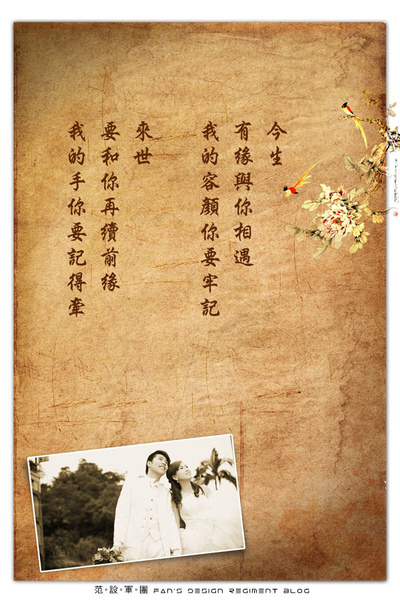 今生
有緣與你相遇
我的容顏你要牢記
來世
要和你再續前緣
我的手你要記得牽
范*設*軍*團 FAN'S DESIGN REGIMENT BLOG